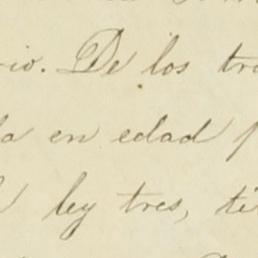 rio. De los tra
la en edad p
ley tres, té